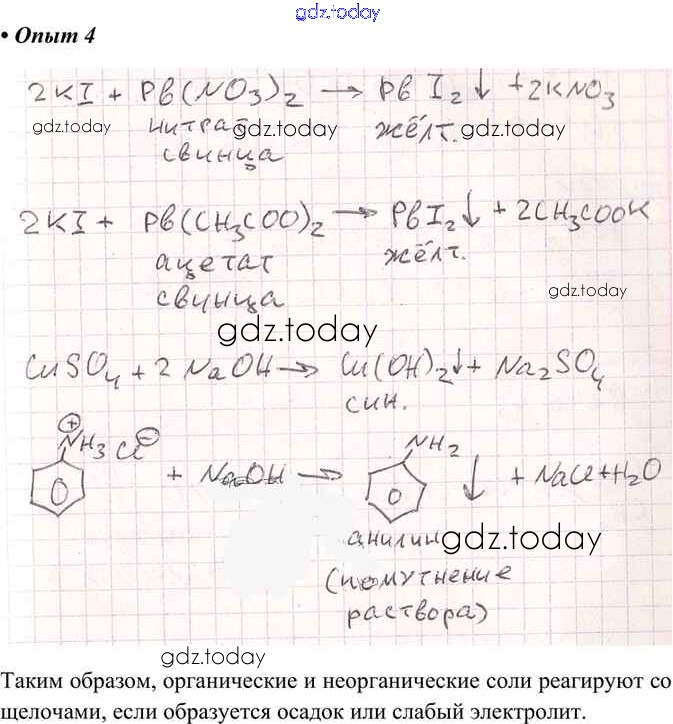 gdz.today
• Опыт 4
2KI + Pb(NO3)2 → PbI2↓ + 2KNO3
gdz.today нитрат gdz.today жёлт. gdz.today
свинца
2KI + Pb(CH3COO)2 → PbI2↓ + 2CH3COOK
ацетат жёлт.
свинца gdz.today
gdz.today
CuSO4 + 2NaOH → Cu(OH)2↓ + Na2SO4
син.
⊕ NH3 Cl ⊖ NH2
+ NaOH → ↓ + NaCl + H2O
анилин gdz.today
(помутнение
раствора)
gdz.today
Таким образом, органические и неорганические соли реагируют со
щелочами, если образуется осадок или слабый электролит.